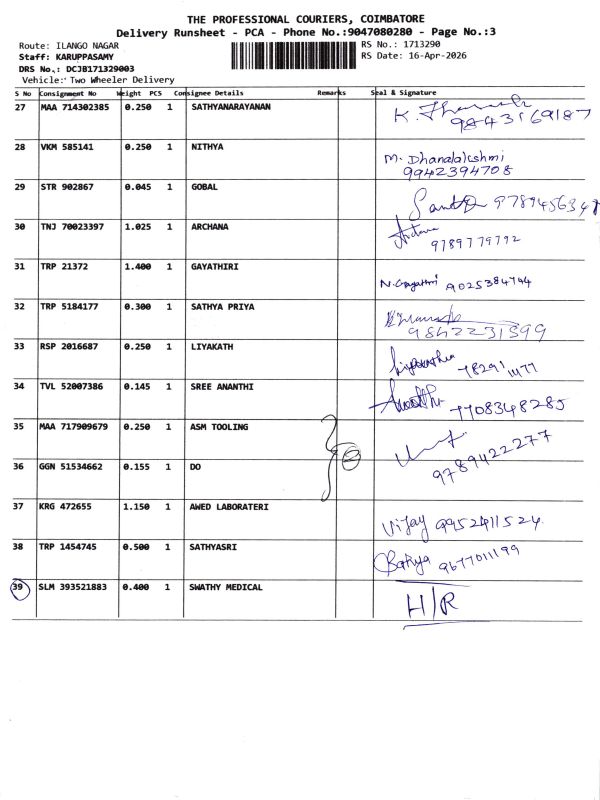 THE PROFESSIONAL COURIERS, COIMBATORE
Delivery Runsheet - PCA - Phone No.:9047080280 - Page No.:3
Route: ILANGO NAGAR
Staff: KARUPPASAMY
DRS No.: DCJB171329003
Vehicle: Two Wheeler Delivery
RS No.: 1713290
RS Date: 16-Apr-2026
S No Consignment No Weight PCS Consignee Details Remarks Seal & Signature
27 MAA 714302385 0.250 1 SATHYANARAYANAN
9843169187
28 VKM 585141 0.250 1 NITHYA M. Dhanalakshmi
9942394708
29 STR 902867 0.045 1 GOBAL 9789456348
30 TNJ 70023397 1.025 1 ARCHANA
9789779792
31 TRP 21372 1.400 1 GAYATHIRI N. Gayathri 9025384744
32 TRP 5184177 0.300 1 SATHYA PRIYA
9842231899
33 RSP 2016687 0.250 1 LIYAKATH
34 TVL 52007386 0.145 1 SREE ANANTHI 7708348285
35 MAA 717909679 0.250 1 ASM TOOLING
9789422277
36 GGN 51534662 0.155 1 DO
37 KRG 472655 1.150 1 AWED LABORATERI Vijay 9952411524
38 TRP 1454745 0.500 1 SATHYASRI Sathya 9677011199
39 SLM 393521883 0.400 1 SWATHY MEDICAL H/R